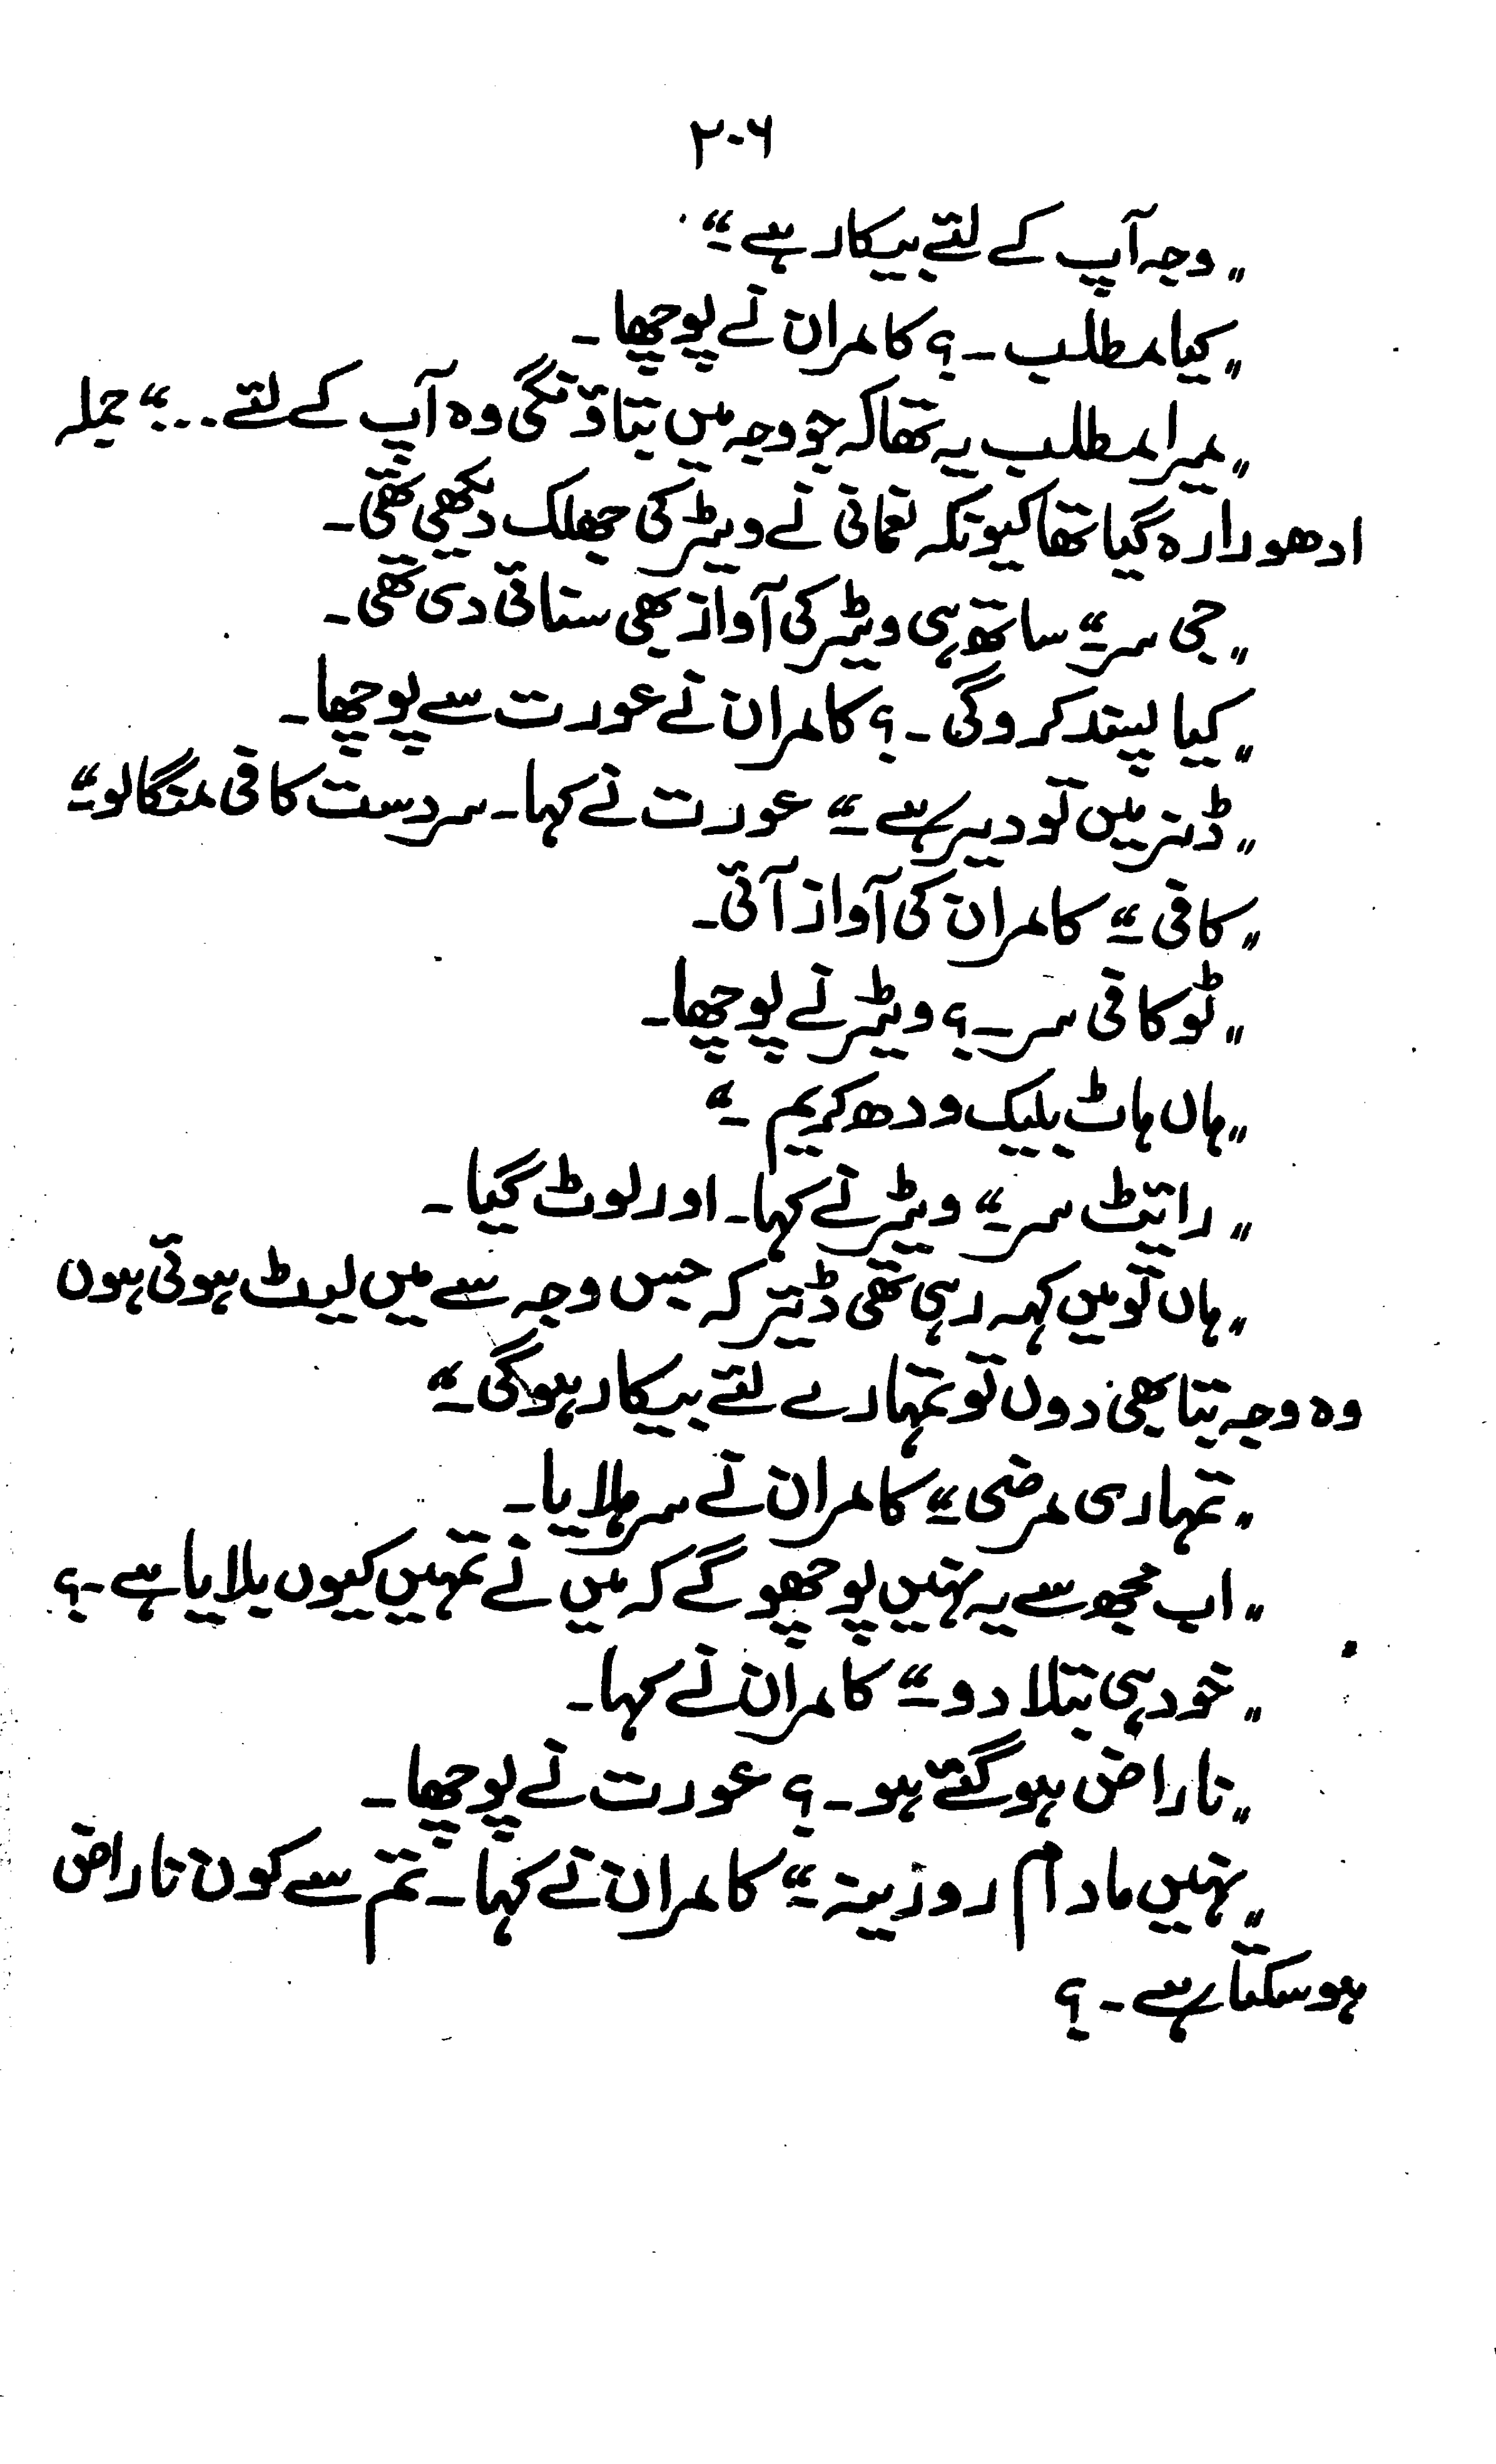 ۲۰۶
"وجہ آپ کے لئے بیکار ہے۔"
"کیا مطلب۔؟ کامران نے پوچھا۔
"میرا مطلب یہ تھا کہ جو وجہ میں بتاؤنگی وہ آپ کے لئے..." جملہ
ادھورا رہ گیا تھا کیونکہ نعمانی نے ویٹر کی جھلک دیکھی تھی۔
"جی سر۔" ساتھ ہی ویٹر کی آواز بھی سنائی دی تھی۔
"کیا پسند کرو گی۔؟ کامران نے عورت سے پوچھا۔
"ڈنر میں تو دیر ہے۔" عورت نے کہا۔ سردست کافی منگا لو۔"
"کافی۔" کامران کی آواز آئی۔
"ٹو کافی سر۔؟ ویٹر نے پوچھا۔
"ہاں ہاٹ بلیک ودھ کریم۔"
"رائیٹ سر۔" ویٹر نے کہا۔ اور لوٹ گیا۔
"ہاں تو میں کہہ رہی تھی ڈیئر کہ جس وجہ سے میں لیٹ ہوئی ہوں
وہ وجہ بتا بھی دوں تو تمہارے لئے بیکار ہوگی۔"
"تمہاری مرضی۔" کامران نے سر ہلایا۔
"اب مجھ سے یہ نہیں پوچھو گے کہ میں نے تمہیں کیوں بلایا ہے۔؟
"خود ہی بتلا دو۔" کامران نے کہا۔
"ناراض ہو گئے ہو۔؟ عورت نے پوچھا۔
"نہیں مادام روزینہ۔" کامران نے کہا۔ تم سے کون ناراض
ہو سکتا ہے۔؟